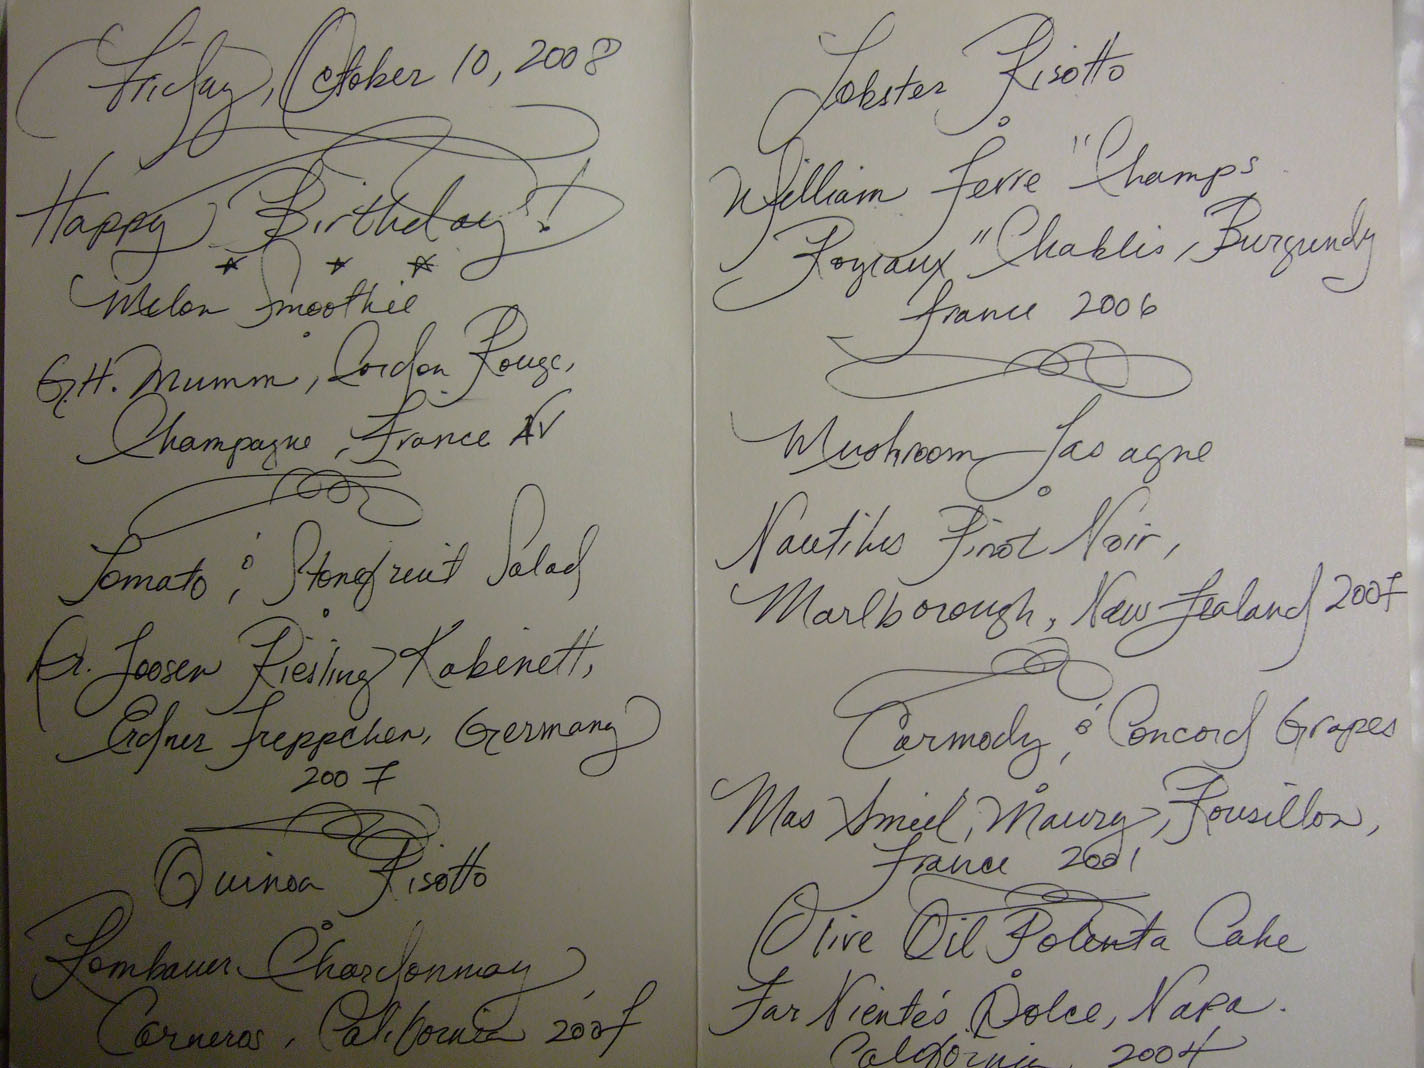 Friday, October 10, 2008
Happy Birthday!
* * *
Melon Smoothie
G.H. Mumm, Cordon Rouge,
Champagne, France NV
Tomato & Stonefruit Salad
Dr. Loosen Riesling Kabinett,
Erdner Treppchen, Germany
2007
Quinoa Risotto
Rombauer Chardonnay,
Carneros, California 2007
Lobster Risotto
William Fevre "Champs
Royraux" Chablis, Burgundy
France 2006
Mushroom Lasagne
Nautilus Pinot Noir,
Marlborough, New Zealand 2007
Carmody & Concord Grapes
Mas Amiel, Maury, Rousillon,
France 2001
Olive Oil Polenta Cake
Far Niente's Dolce, Napa.
California, 2004